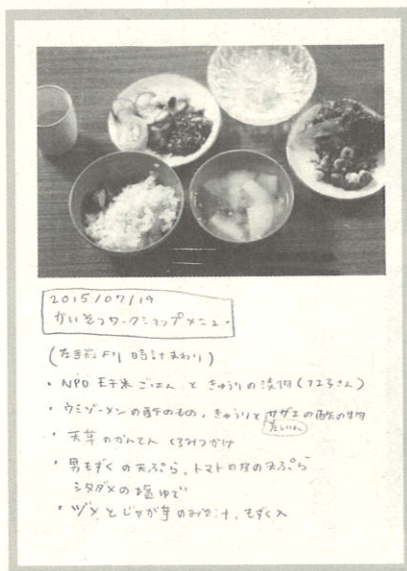 2015/07/19
かいそうワークショップメニュー
(左手前より 時計まわり)
・NPO 玉子米ごはん と きゅうりの漬物 (フエ子さん)
・ウミゾーメンの酢のもの、きゅうりと サザエの酢の物
・天草のかんてん くろみつかけ
・男もずくの天ぷら、トマトの天ぷら
シタダメの塩ゆで
・ヅメとじゃが芋のみそ汁、もずく入